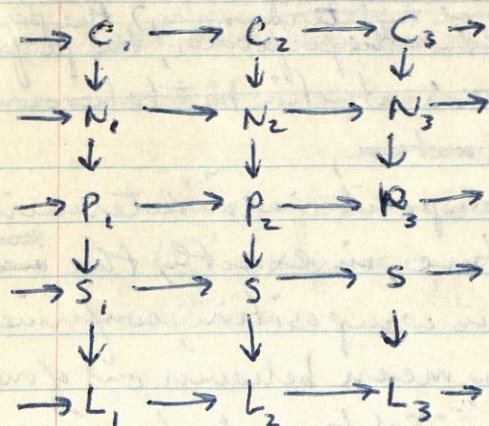 → C₁ → C₂ → C₃ →
↓ ↓ ↓
→ N₁ → N₂ → N₃ →
↓ ↓ ↓
→ P₁ → P₂ → P₃ →
↓ ↓
→ S₁ → S → S →
↓ ↓ ↓
→ L₁ → L₂ → L₃ →